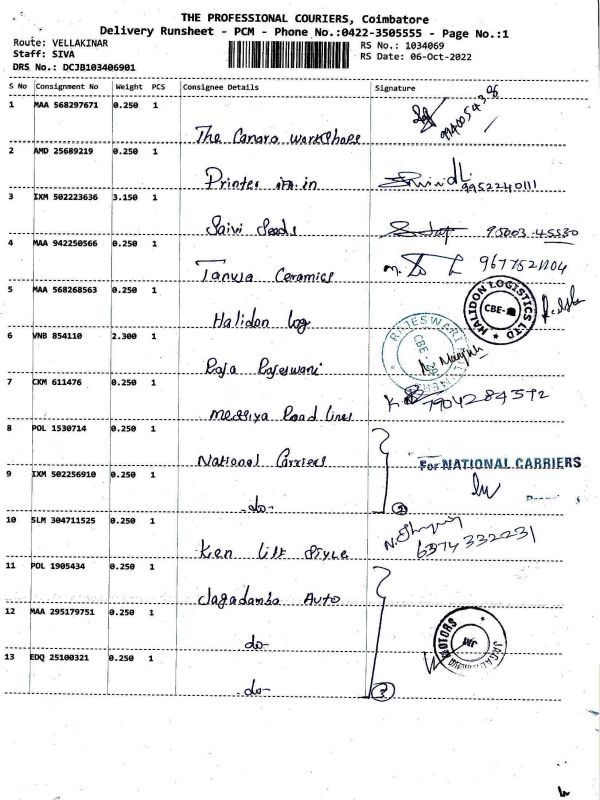 THE PROFESSIONAL COURIERS, Coimbatore
Delivery Runsheet - PCM - Phone No.:0422-3505555 - Page No.:1
Route: VELLAKINAR
Staff: SIVA
DRS No.: DCJB103406901
RS No.: 1034069
RS Date: 06-Oct-2022
S No Consignment No Weight PCS Consignee Details Signature
1 MAA 568297671 0.250 1
The Canara workshops
2 AMD 25689219 0.250 1
Printer in
9952240111
3 IXM 502223636 3.150 1
Saivi Seeds
95003 45530
4 MAA 942250566 0.250 1
Tanwa Ceramics
9677521104
5 MAA 568268563 0.250 1
Halidon log
HALIDON LOGISTICS LTD
CBE-
6 VNB 854110 2.300 1
Raja Rajeswari
RAJESWARI
CBE - 
7 CKM 611476 0.250 1
Messiya Road lines
7904284592
8 POL 1530714 0.250 1
National Carriers
For NATIONAL CARRIERS
9 IXM 502256910 0.250 1
-do-
2
10 SLM 304711525 0.250 1
Ken Lift Style
6374332231
11 POL 1905434 0.250 1
Jagadamba Auto
12 MAA 295179751 0.250 1
-do-
MOTORS
JM
13 EDQ 25100321 0.250 1
-do-
3